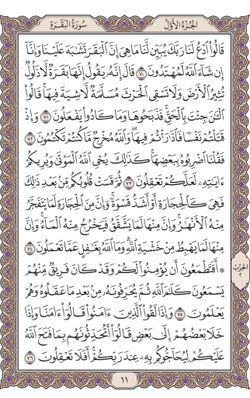 الجزء الأول
سورة البقرة
قالوا ادع لنا ربك يبين لنا ما هي إن البقر تشبه علينا وإنا
إن شاء الله لمهتدون ٧٠ قال إنه يقول إنها بقرة لا ذلول
تثير الأرض ولا تسقي الحرث مسلمة لا شية فيها قالوا
الـن جئت بالحق فذبحوها وما كادوا يفعلون ٧١ وإذ
قتلتم نفسا فادرأتم فيها والله مخرج ما كنتم تكتمون ٧٢
فقلنا اضربوه ببعضها كذلك يحي الله الموتى ويريكم
ءايته لعلكم تعقلون ٧٣ ثم قست قلوبكم من بعد ذلك
فهي كالحجارة أو أشد قسوة وإن من الحجارة لما يتفجر
منه الأنهر وإن منها لما يشقق فيخرج منه الماء وإن
منها لما يهبط من خشية الله وما الله بغفل عما تعملون ٧٤
۞ أفتطمعون أن يؤمنوا لكم وقد كان فريق منهم
يسمعون كلم الله ثم يحرفونه من بعد ما عقلوه وهم
يعلمون ٧٥ وإذا لقوا الذين ءامنوا قالوا ءامنا وإذا
خلا بعضهم إلى بعض قالوا أتحدثونهم بما فتح الله
عليكم ليحاجوكم به عند ربكم أفلا تعقلون ٧٦
١١